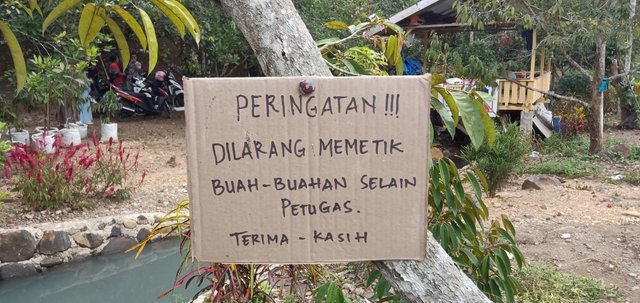 PERINGATAN!!!
DILARANG MEMETIK
BUAH-BUAHAN SELAIN
PETUGAS.
TERIMA - KASIH